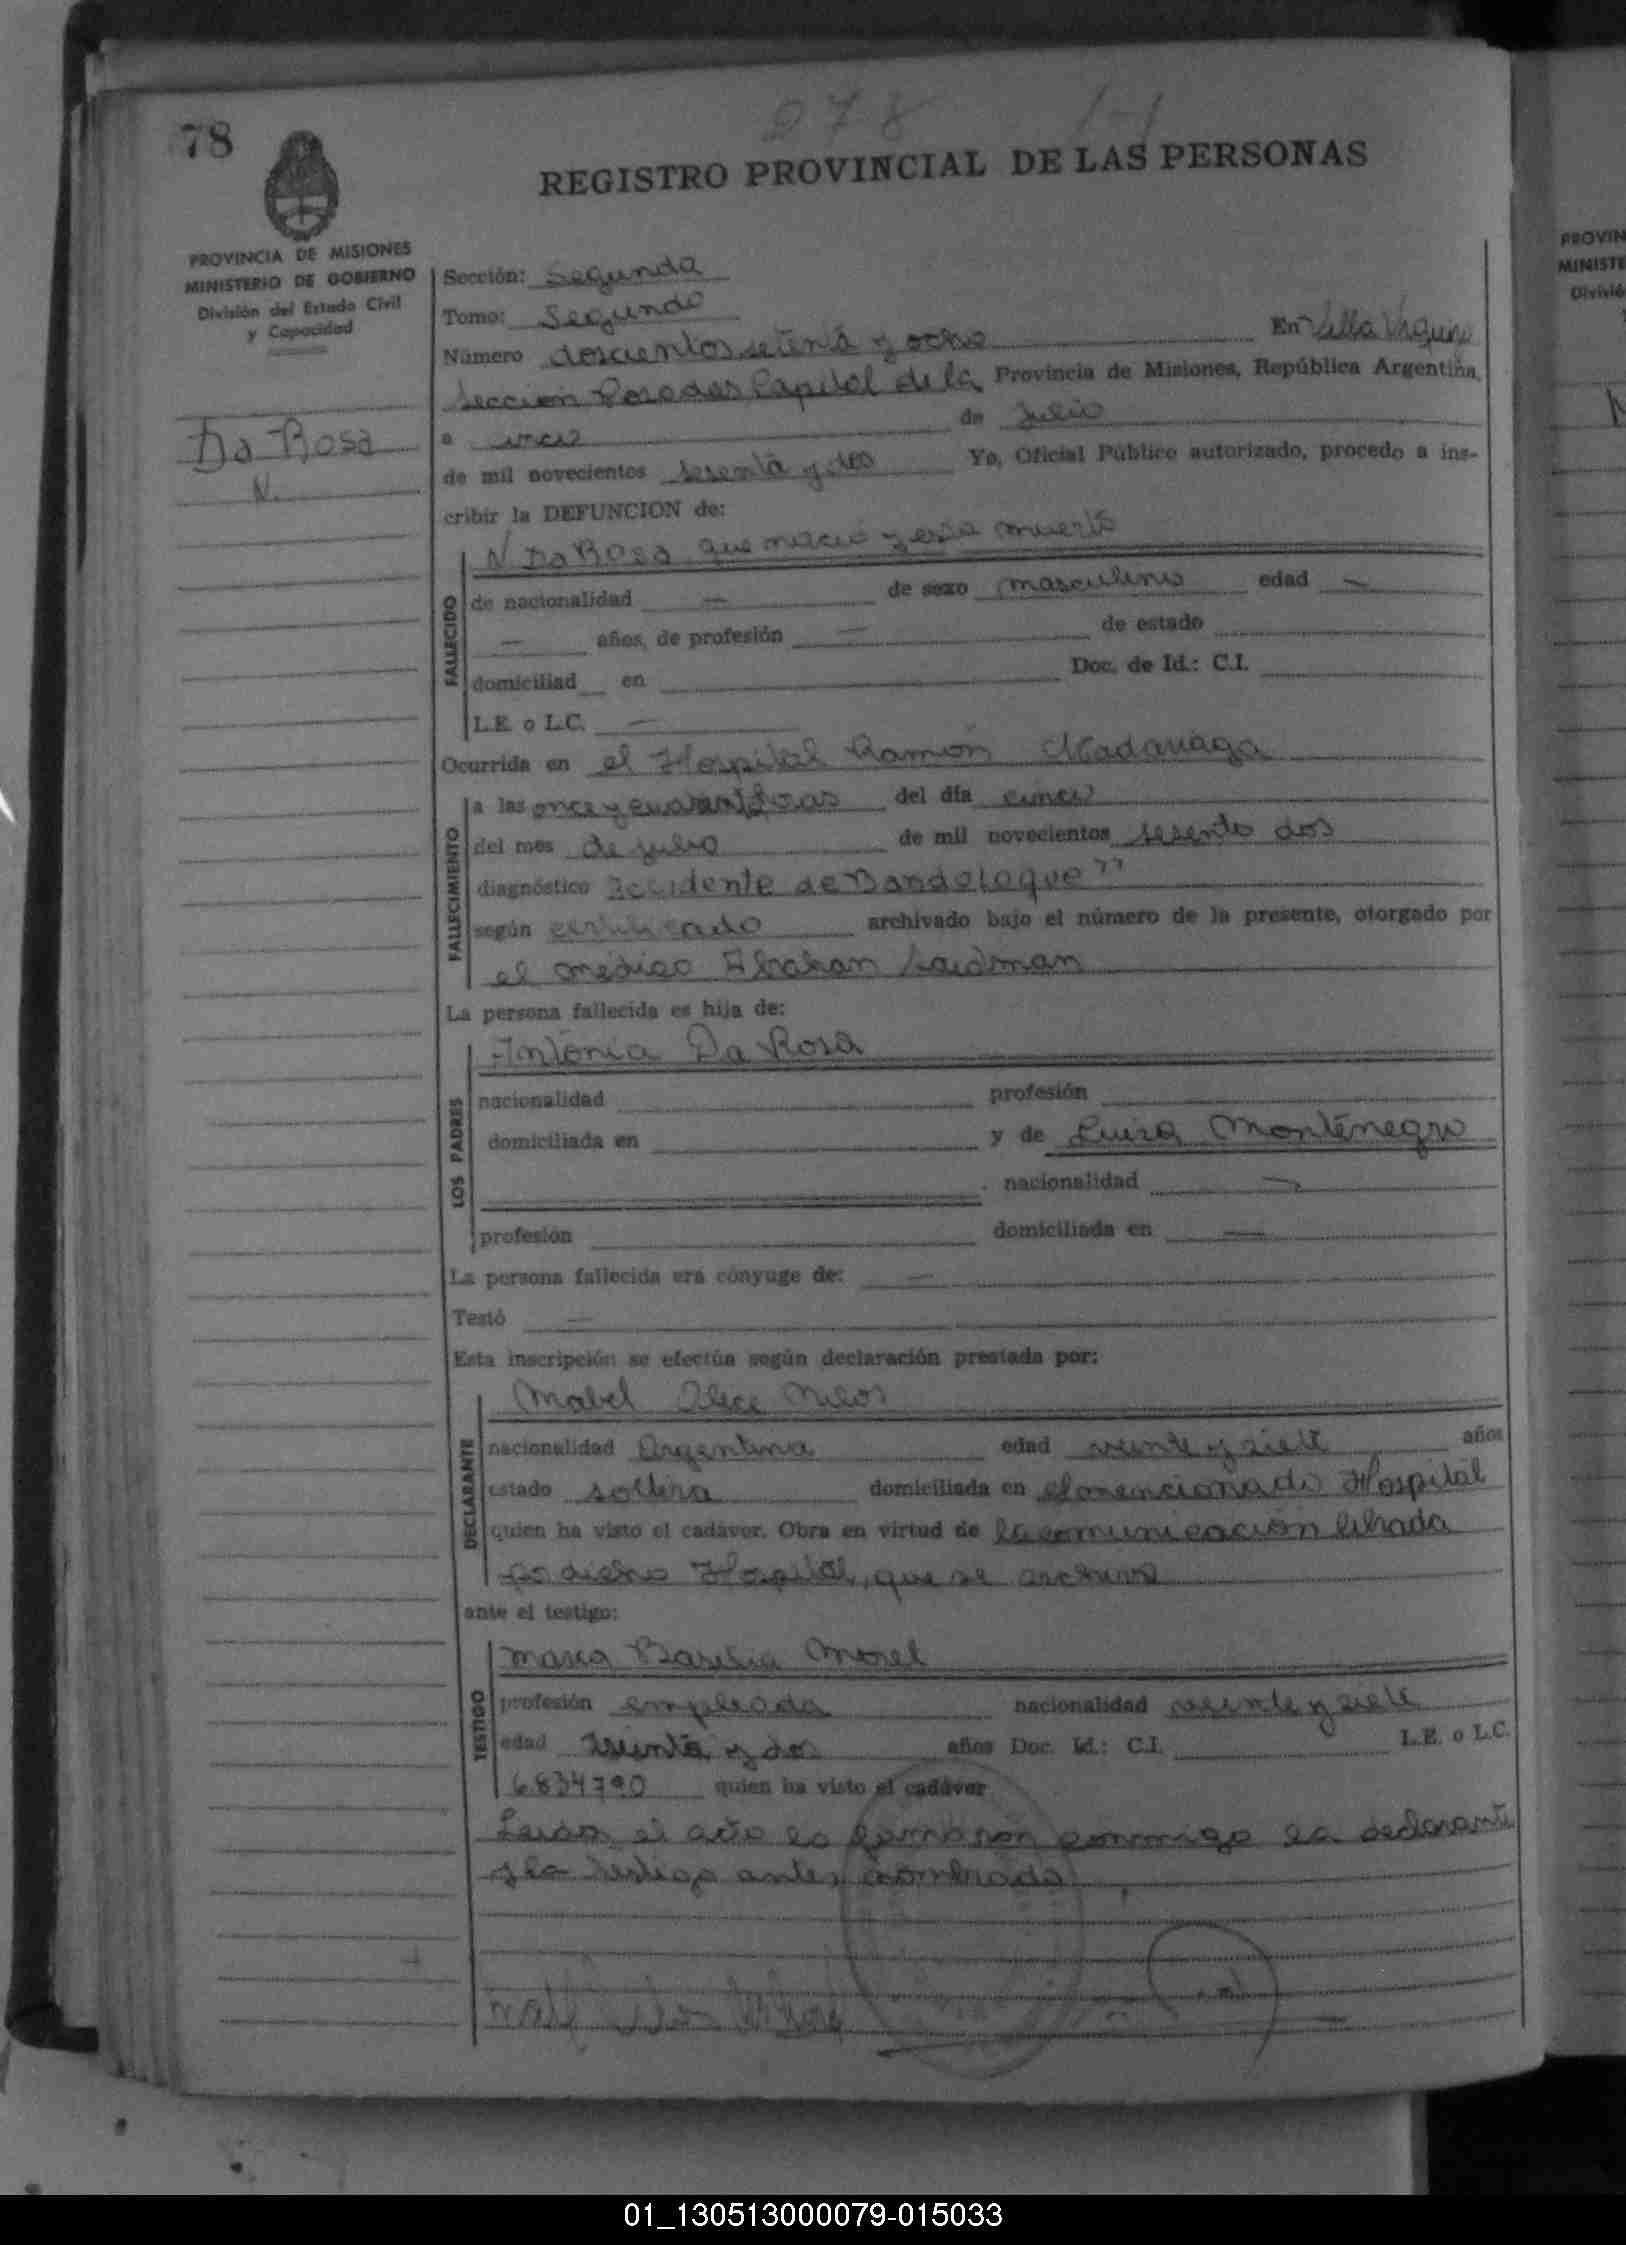 78
278
REGISTRO PROVINCIAL DE LAS PERSONAS
PROVINCIA DE MISIONES
MINISTERIO DE GOBIERNO
División del Estado Civil
y Capacidad
Da Rosa
N.
Sección: Segunda
Tomo: Segundo
Número doscientos setenta y ocho En Villa Urquiza
Sección Posadas Capital de la Provincia de Misiones, República Argentina,
a cinco de Julio
de mil novecientos sesenta y dos Yo, Oficial Público autorizado, procedo a ins-
cribir la DEFUNCION de:
N Da Rosa que nació y esta muerto
FALLECIDO
de nacionalidad — de sexo masculino edad —
— años, de profesión — de estado
domiciliad en Doc. de Id.: C.I.
L.E. o L.C. —
Ocurrida en el Hospital Ramón Madariaga
FALLECIMIENTO
a las once y cuarenta horas del día cinco
del mes de julio de mil novecientos sesenta dos
diagnóstico Accidente de Bandoloque"
según certificado archivado bajo el número de la presente, otorgado por
el médico Abrahan
La persona fallecida es hija de:
LOS PADRES
Antonia Da Rosa
nacionalidad profesión
domiciliada en y de Luisa Montenegro
nacionalidad —
profesión domiciliada en —
La persona fallecida era cónyuge de: —
Testó —
Esta inscripción se efectúa según declaración prestada por:
DECLARANTE
Mabel Alice
nacionalidad Argentina edad veinte y siete años
estado soltera domiciliada en el mencionado Hospital
quien ha visto el cadáver. Obra en virtud de la comunicación librada
por dicho Hospital, que se archiva
ante el testigo:
TESTIGO
Maria Basilia Morel
profesión empleada nacionalidad veinte y siete
edad treinta y dos años Doc. Id.: C.I. L.E. o L.C.
6834790 quien ha visto el cadáver
Leída el acta la firmaron conmigo la declarante
y la testigo antes nombrada
PROVIN
MINISTE
Divisió
01_130513000079-015033